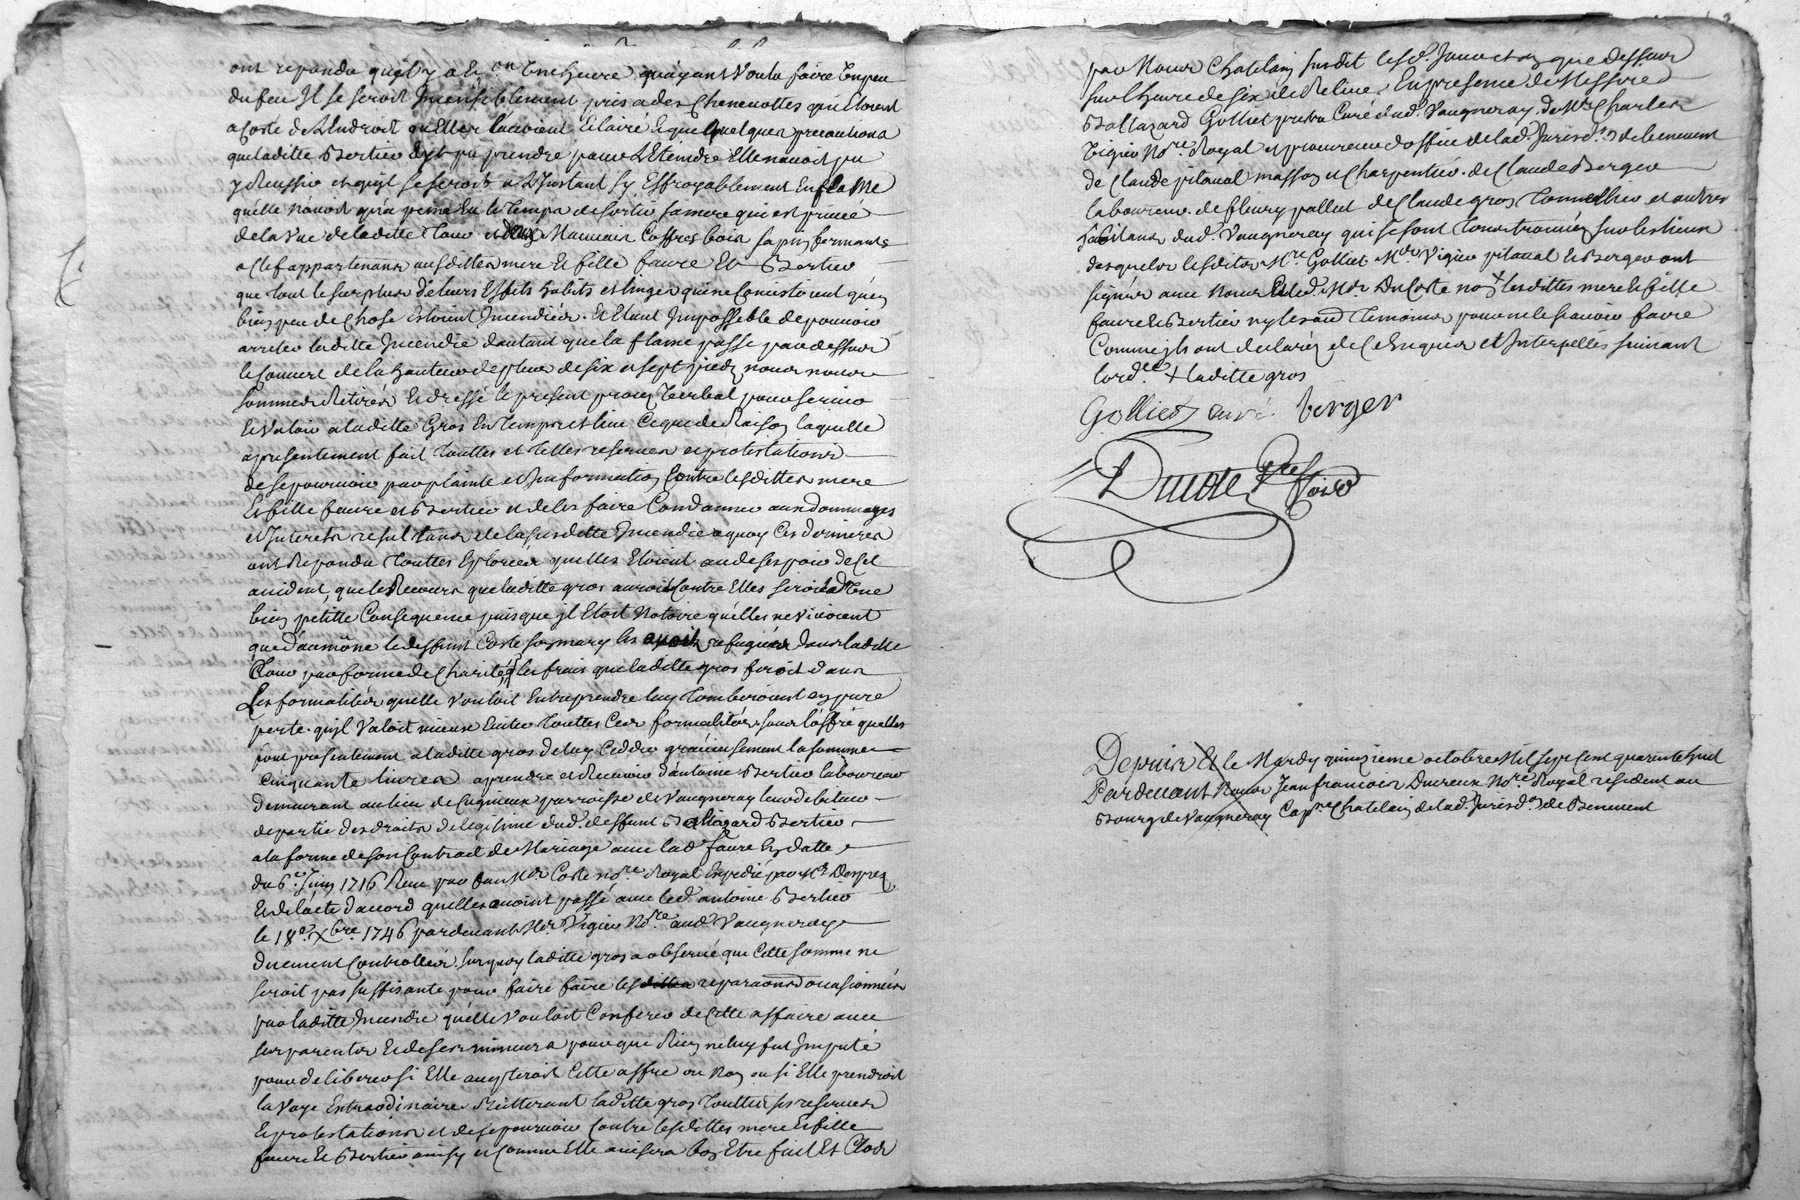 ont repondu quil y a eu une heure quayant voulu faire un peu
du feu Il se seroit Insensiblement pris a des Chenevottes qui Etoient
a Coste de Lendroit ou Elles lavoient Eclairé Et que quelques precautions
que laditte Bertier Eut pu prendre pour L'Eteindre Elle nauoit pu
y Reussir et quil se seroit a L'Instant sy Effroyablement Enflamé
qu'elle n'auoit qu'a peine Eu le Temps de sortir sa mere qui est privée
de la Vue de laditte Tour et deux Mauvais Coffres bois sapin fermants
a Clef appartenants ausdittes mere Et fille faure Et Bertier
que Tout le surplus de leurs Effets habits et linges qui ne Consistoient qu'en
bien peu de Chose Estoient Incendiés. Et Etant Impossible de pouvoir
arreter laditte Incendie dautant que la flame passe par dessus
le Couvert de la hauteur de plus de six a sept pieds nous nous
sommes Retirés Et dressé le present procès Verbal pour servir
Et Valoir a laditte Gros En Temps et lieu Ce que de Raison laquelle
a presentement fait Touttes et Telles reserves et protestations
de se pourvoir par plainte et Information Contre lesdittes mere
Et fille faure et Bertier et de les faire Condamner aux dommages
et Interets resultans de la susditte Incendie a quoy Ces dernieres
ont Repondu Touttes Eplorées quelles Etoient au desespoir de Cet
accident, que le Recours que laditte gros auroit Contre Elles seroit d'une
bien petitte Consequence puisque jl Etoit Notoire qu'elles ne vivoient
que d'aumône le deffunt Coste son mary les avoit refugiées dans laditte
Tour par forme de Charité, que les frais que laditte gros feroit dans
Les formalités quelle Vouloit Entreprendre luy Tomberoient en pure
perte. quil Valoit mieux Eviter Touttes Ces formalités sur l'offre quelles
font presentement a laditte gros de luy Cedder gratieusement la somme
Cinquante livres a prendre et Recevoir d'antoine Bertier laboureur
demeurant au lieu de parroisse de Vaugneray leur debiteur
de partie des droits de legitime dud. deffunt Baltazard Bertier
a la forme de son Contract de Mariage avec lad. faure En datte
du 6e. Juin 1716 Receu par feu Me Coste nore Royal Expedié par Me
Et de lacte d'accord quelles avoient passé avec led. antoine Bertier
le 18e. Xbre. 1746 pardevant Me Vigier Nore. aud. Vaugneray
duement Controllé. surquoy laditte gros a observé que Cette somme ne
seroit pas suffisante pour faire faire les reparaons occasionnées
par laditte Incendie qu'elle Vouloit Conferer de Cette affaire avec
ses parentes Et de ses mineurs pour que Rien ne luy fut Imputé
pour deliberer si Elle accepteroit Cette offre ou Non ou si Elle prendroit
la Voye Extraordinaire Reitterant laditte gros Touttes ses reserves
Et protestations et de se pourvoir Contre lesdittes mere Et fille
faure Et Bertier ainsy et Comme Elle avisera bon Etre fait Et Clos
par Nous Chatelain susdit lesd. Jour et an que dessus
sur L'heure de six de Relevée En presence de Messire
Baltazard Golliet pretre Curé dud. Vaugneray, de Me Charles
Vigier Nore. Royal et procureur d'office de lad. Jurisdon de benevent
de Claude pitaval masson et Charpentier. de Claude Berger
laboureur. de fleury pallut de Claude gros Tonnellier et autres
habitans dud. Vaugneray qui se sont Tous trouvés sur les lieux
desquels lesdits Mre Golliet Me Vigier pitaval Et Berger ont
signés avec Nous Et led. Me DuCoste non + lesdittes mere Et fille
faure Et Bertier ny les aud Temoins pour ne le scavoir faire
Comme ils ont declarés de Ce Enquis et Interpellés suivant
lordce + laditte gros
Golliet curé berger
Depuis Et le Mardy quinzieme octobre Mil sept Cent quarente huit
Pardevant Nous Jean francois Ducreux Nore. Royal resident au
Bourg de Vaugneray Capne Chatelain de lad. Jurisdon de Benevent